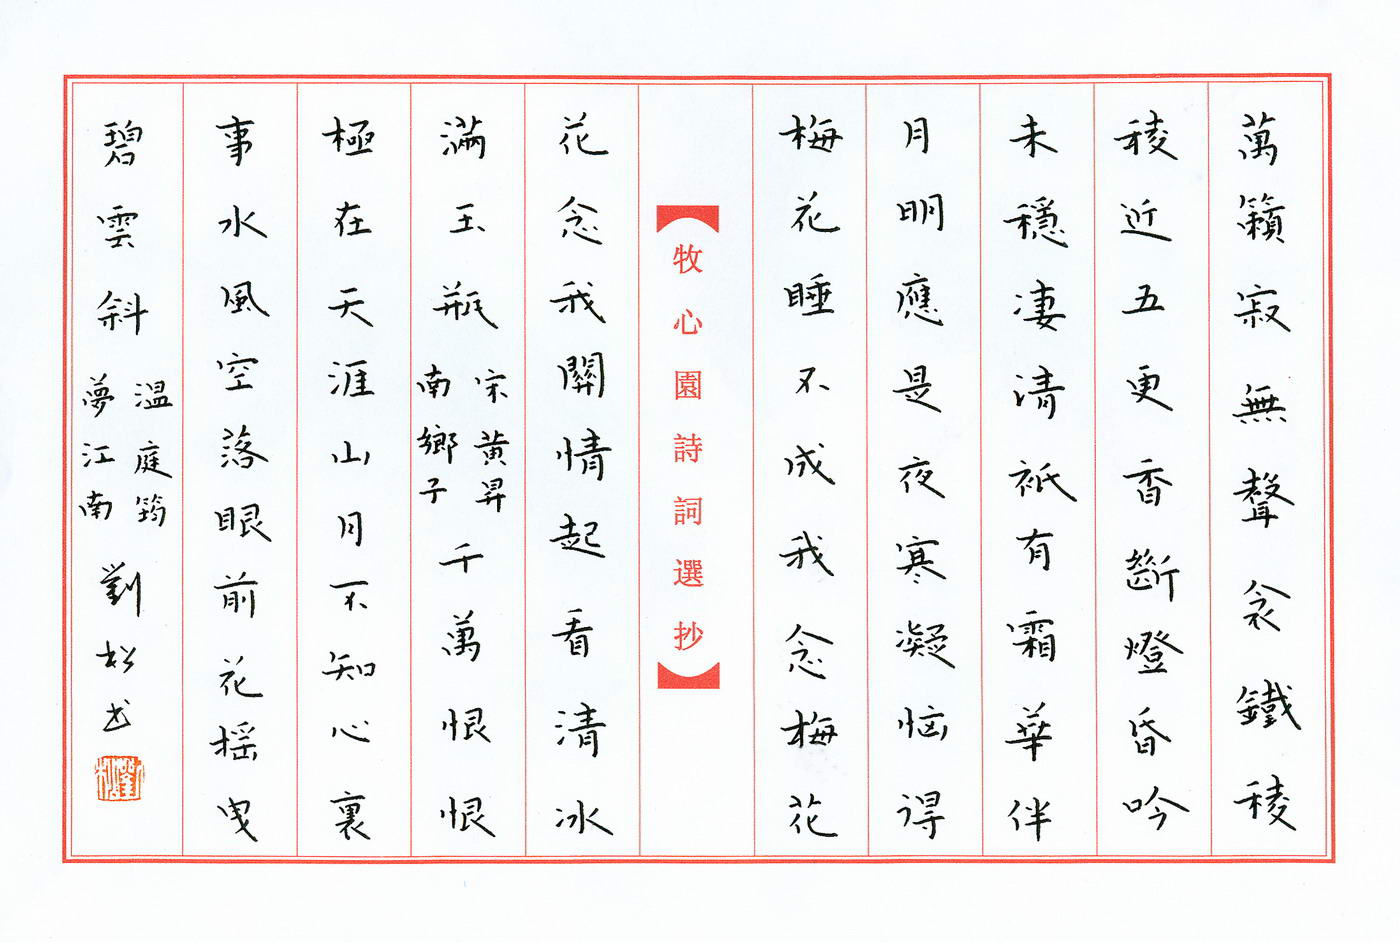 萬籟寂無聲衾鐵稜
稜近五更香斷燈昏吟
未穩凄清祇有霜華伴
月明應是夜寒凝惱得
梅花睡不成我念梅花
【牧心園詩詞選抄】
花念我關情起看清冰
滿玉瓶宋黃昇南鄉子千萬恨恨
極在天涯山月不知心裏
事水風空落眼前花搖曳
碧雲斜溫庭筠夢江南劉松書